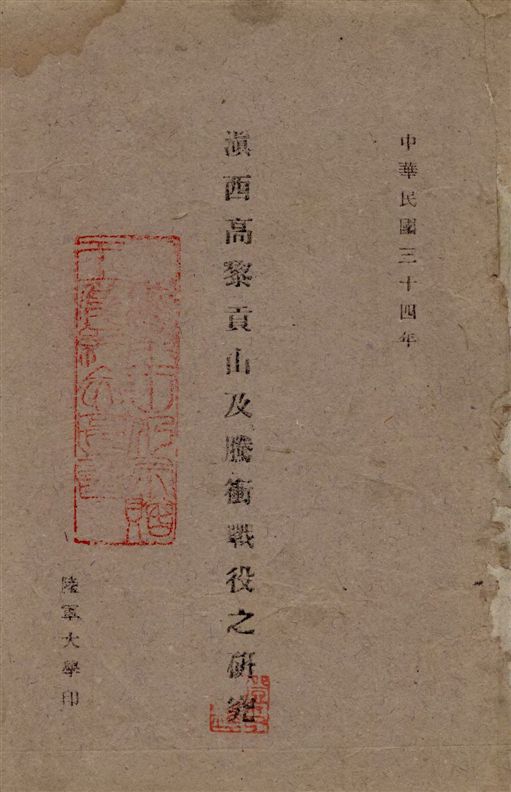 中華民國三十四年
滇西高黎貢山及騰衝戰役之研究
陸軍大學印